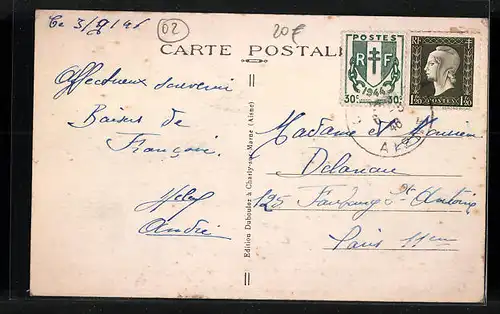 Ce 3/9/46
02
20€
CARTE POSTALE
Affectueux souvenir
Baisers de
François
André
Edition Duboulez à Charly-sur-Marne (Aisne)
RF
1944
30c 30c
RF
1f20 POSTES 1f20
46
Madame et Monsieur
125 Faubourg St Antoine
Paris 11em